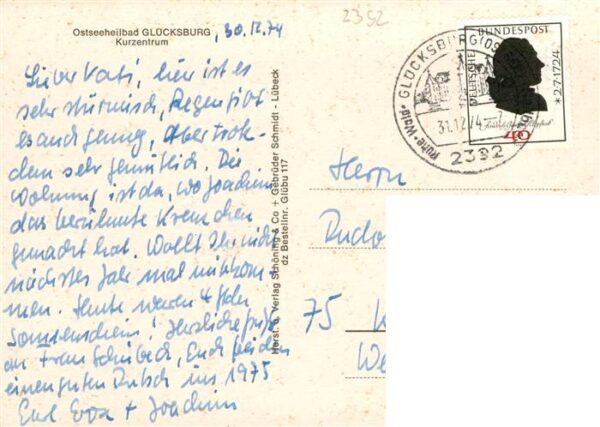 2392
Ostseeheilbad GLÜCKSBURG, 30.12.74
Kurzentrum
Lieber Vati, hier ist es
sehr stürmisch, Regen gibt
es auch genug, aber trotz-
dem sehr gemütlich. Die
Wohnung ist da, wo Joachim
das berühmte Kreuzchen
gemacht hat. Wollt Ihr nicht
nächstes Jahr mal mitkom-
men. Heute waren 4 Std.
Sonnenschein! Herzliche Grüße
an Frau Schübeck, Euch beiden
einen guten Rutsch ins 1975
Eure Eva + Joachim
Herst. u. Verlag Schöning & Co + Gebrüder Schmidt - Lübeck
dz Bestellnr. Glübu 117
GLÜCKSBURG (OSTSEE)
Ruhe · Wald
31.12.74-
2392
DEUTSCHE BUNDESPOST
* 2.7.1724
40
Herrn
Rudo
75 K
We